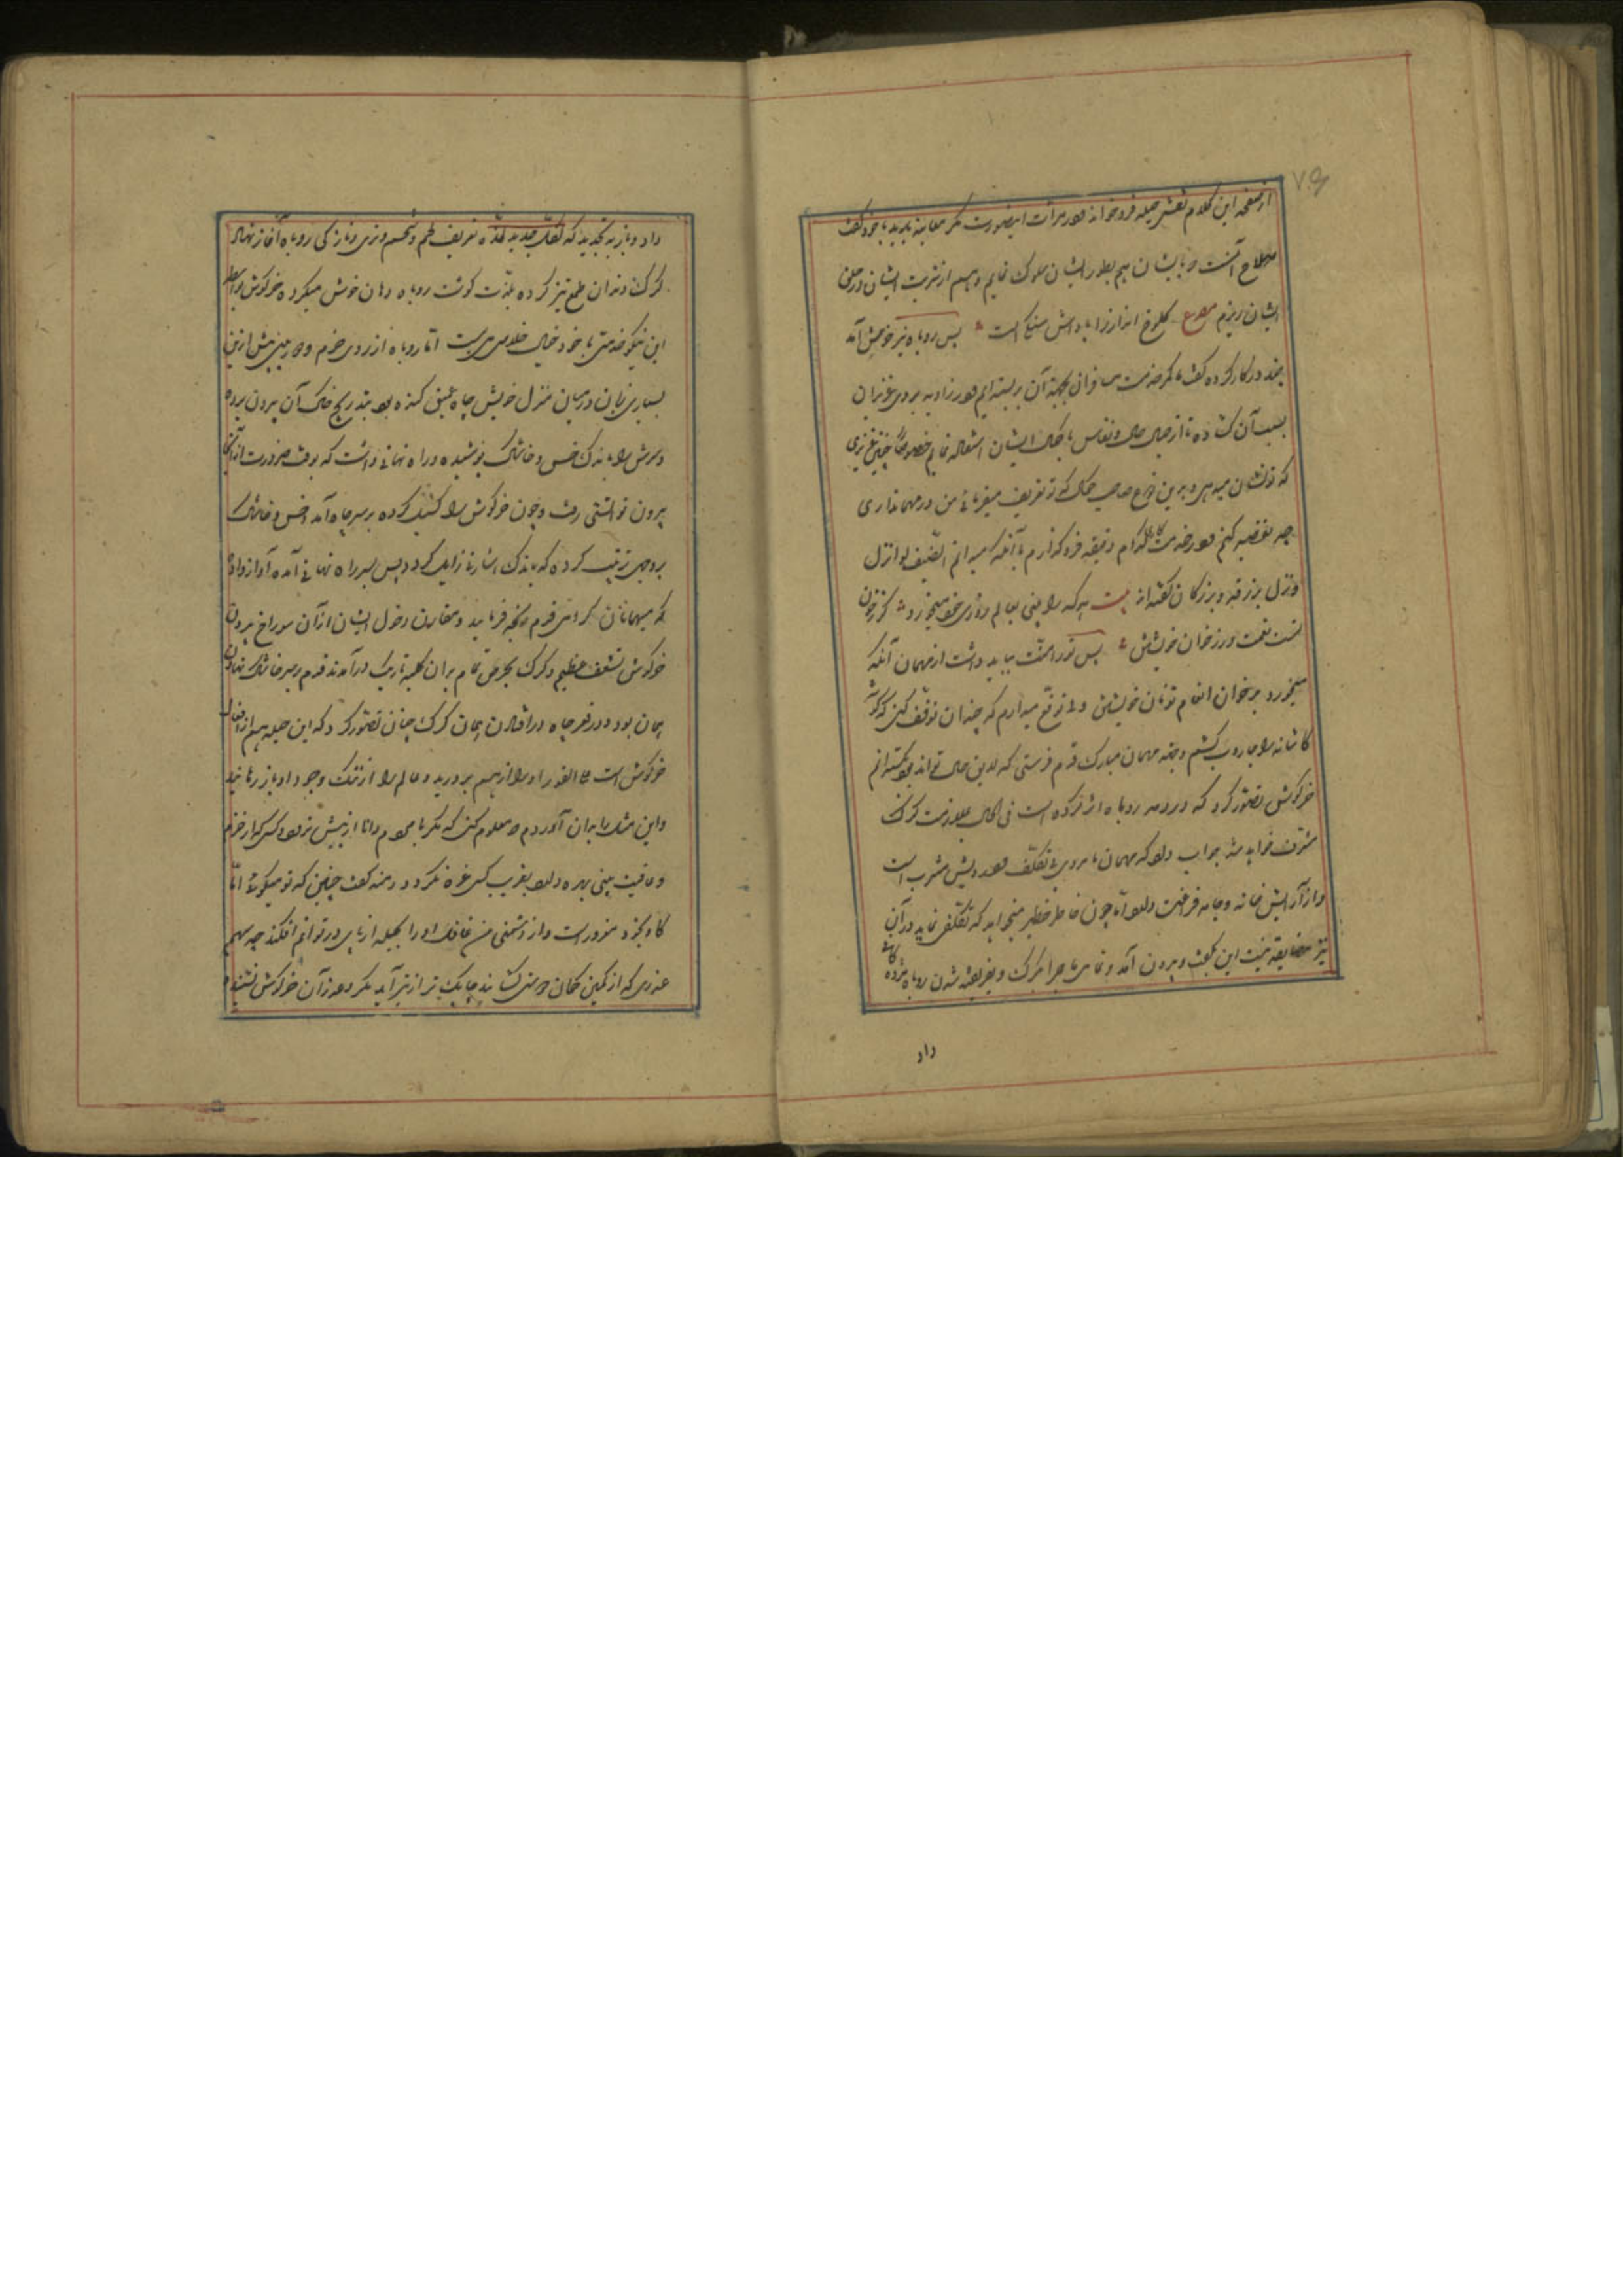 از صفحه این کلام نقش حیله فروخواند و در مرآت این صورت مکر معاینه بدید با خود گفت
صلاح آنست که با ایشان هم بطور ایشان سلوک نمایم و هم از شربت ایشان در حلق
ایشان ریزم مصرع کلوخ انداز را پاداش سنگ است پس روباه نیز خوش آمد
چند در کار کرده گفت ما کمر خدمت مسافران بجهة آن بر بسته ایم و در زاویه بروی عزیزان
بسبب آن گشاده تا از جمال و انفاس با کمال ایشان استفاضه نمایم خصوصا چنین عزیزی
که تو نشان میدهی و برین نوع صاحب کمالی که تو تعریف میفرمائی من در مهمانداری
چه تقصیر کنم و در خدمتکاری کدام دقیقه فرو گذارم با آنکه میدانم الضیف اذا نزل
نزل برزقه و بزرگان گفته اند بیت هر که را بینی بعالم روزی خود میخورد گر ز خوان
تست نعمت ور ز خوان خویشتن پس ترا منت بباید داشت از مهمان آنکه
میخورد بر خوان انعام تو نان خویشتن ولی توقع میدارم که چندان توقف کنی که گوشه
کاشانه را جاروب کشم و بجهة مهمان مبارک قدم فرشی که لایق حال تواند بود بگسترانم
خرگوش تصور کرد که دمدمه روباه اثر کرده است فی الحال بملازمت گرگ
مشرف خواهد شد جواب داد که مهمان ما مردی بی تکلف و درویش مشرب است
و از آرایش خانه و جامه فراغت دارد اما چون خاطر خطیر میخواهد که تکلفی نماید در آن
نیز مضایقه نیست این بگفت و بیرون آمد و تمامی ماجرا با گرگ و بفریفته شدن روباه مژده
داد
داد و باز به تجدید که لکل جدید لذة تعریف لحم و شحم و تری و تازگی روباه آغاز نهاد
گرگ دندان طمع تیز کرده بلذت گوشت روباه دهان خوش میکرد و خرگوش بواسطه
این نیکو خدمتی با خود خیال خلاصی می بست اما روباه از روی حزم و دوربینی پیش ازین
بسیاری زمان در میان منزل خویش چاه عمیق کنده بود و بتدریج خاک آن بیرون برده
و سرش را باندک خس و خاشاک پوشیده و راه نهانی داشت که بوقت ضرورت از آنجا
بیرون توانستی رفت و چون خرگوش را گسیل کرده بر سر چاه آمد خس و خاشاک
بروجهی ترتیب کرده که باندک اشارتی زایل گردد پس بسر راه نهانی آمده آواز داد
که میهمانان گرامی قدم رنجه فرمایید و مقارن دخول ایشان از آن سوراخ بیرون
خرگوش بشعف عظیم و گرگ بحرص تمام بدان کلبه تاریک درآمدند قدم بر سر خاشاک نهادن
همان بود و در قعر چاه درافتادن همان گرگ چنان تصور کرد که این حیله هم از افعال
خرگوش است علی الفور او را از هم بردرید و عالم را از ننگ وجود او باز رهانید
و این مثل را بدان آوردم تا معلوم کنی که مکر با مردم دانا از پیش نرود و کسی که از حزم
و عاقبت بینی بهره دارد بفریب کسی غره نگردد دمنه گفت چنین که تو میگوئی اما
گاو بخود مغرور است و از دشمنی من غافل او را بحیله از پای در توانم افکند چه سهم
غدری که از کمین کمان دوستی گشایند چابک تر از تیر آید مگر غدر آن خرگوش نشنیده